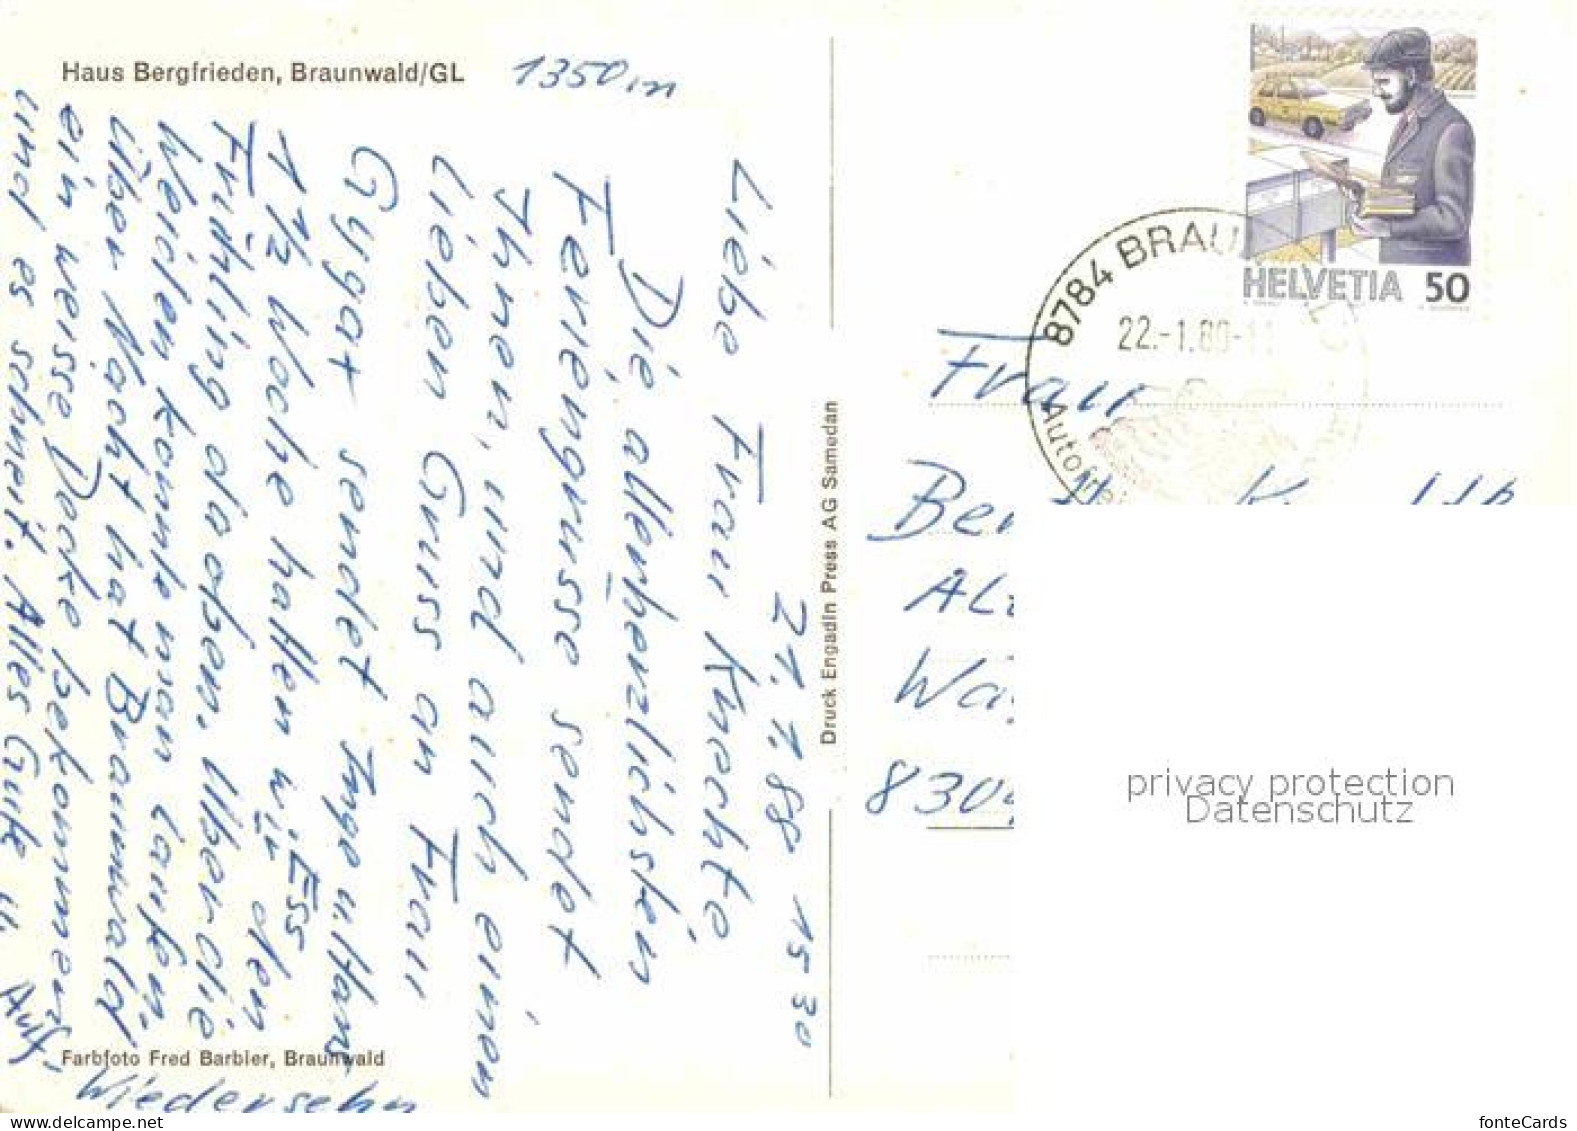 Haus Bergfrieden, Braunwald/GL
1350 m
21.1.88 15 30
Liebe Frau Knechte,
Die allerherzlichsten
Feriengrüsse sendet
Ihnen, und auch einen
lieben Gruss an Frau
Gygax sendet Inge u. Hans
1½ Woche hatten wir den
Frühling da oben. Über die
Weiden konnte man laufen.
Über Nacht hat Braunwald
ein weisse Decke bekommen,
und es schneit. Alles Gute u.
Auf
Wiedersehn
Ess
Farbfoto Fred Barbier, Braunwald
Druck Engadin Press AG Samedan
HELVETIA 50
8784 BRAU
22.-1.88-11
Autofre
Frau
Be
Al
Wa
8304
privacy protection
Datenschutz
fonteCards